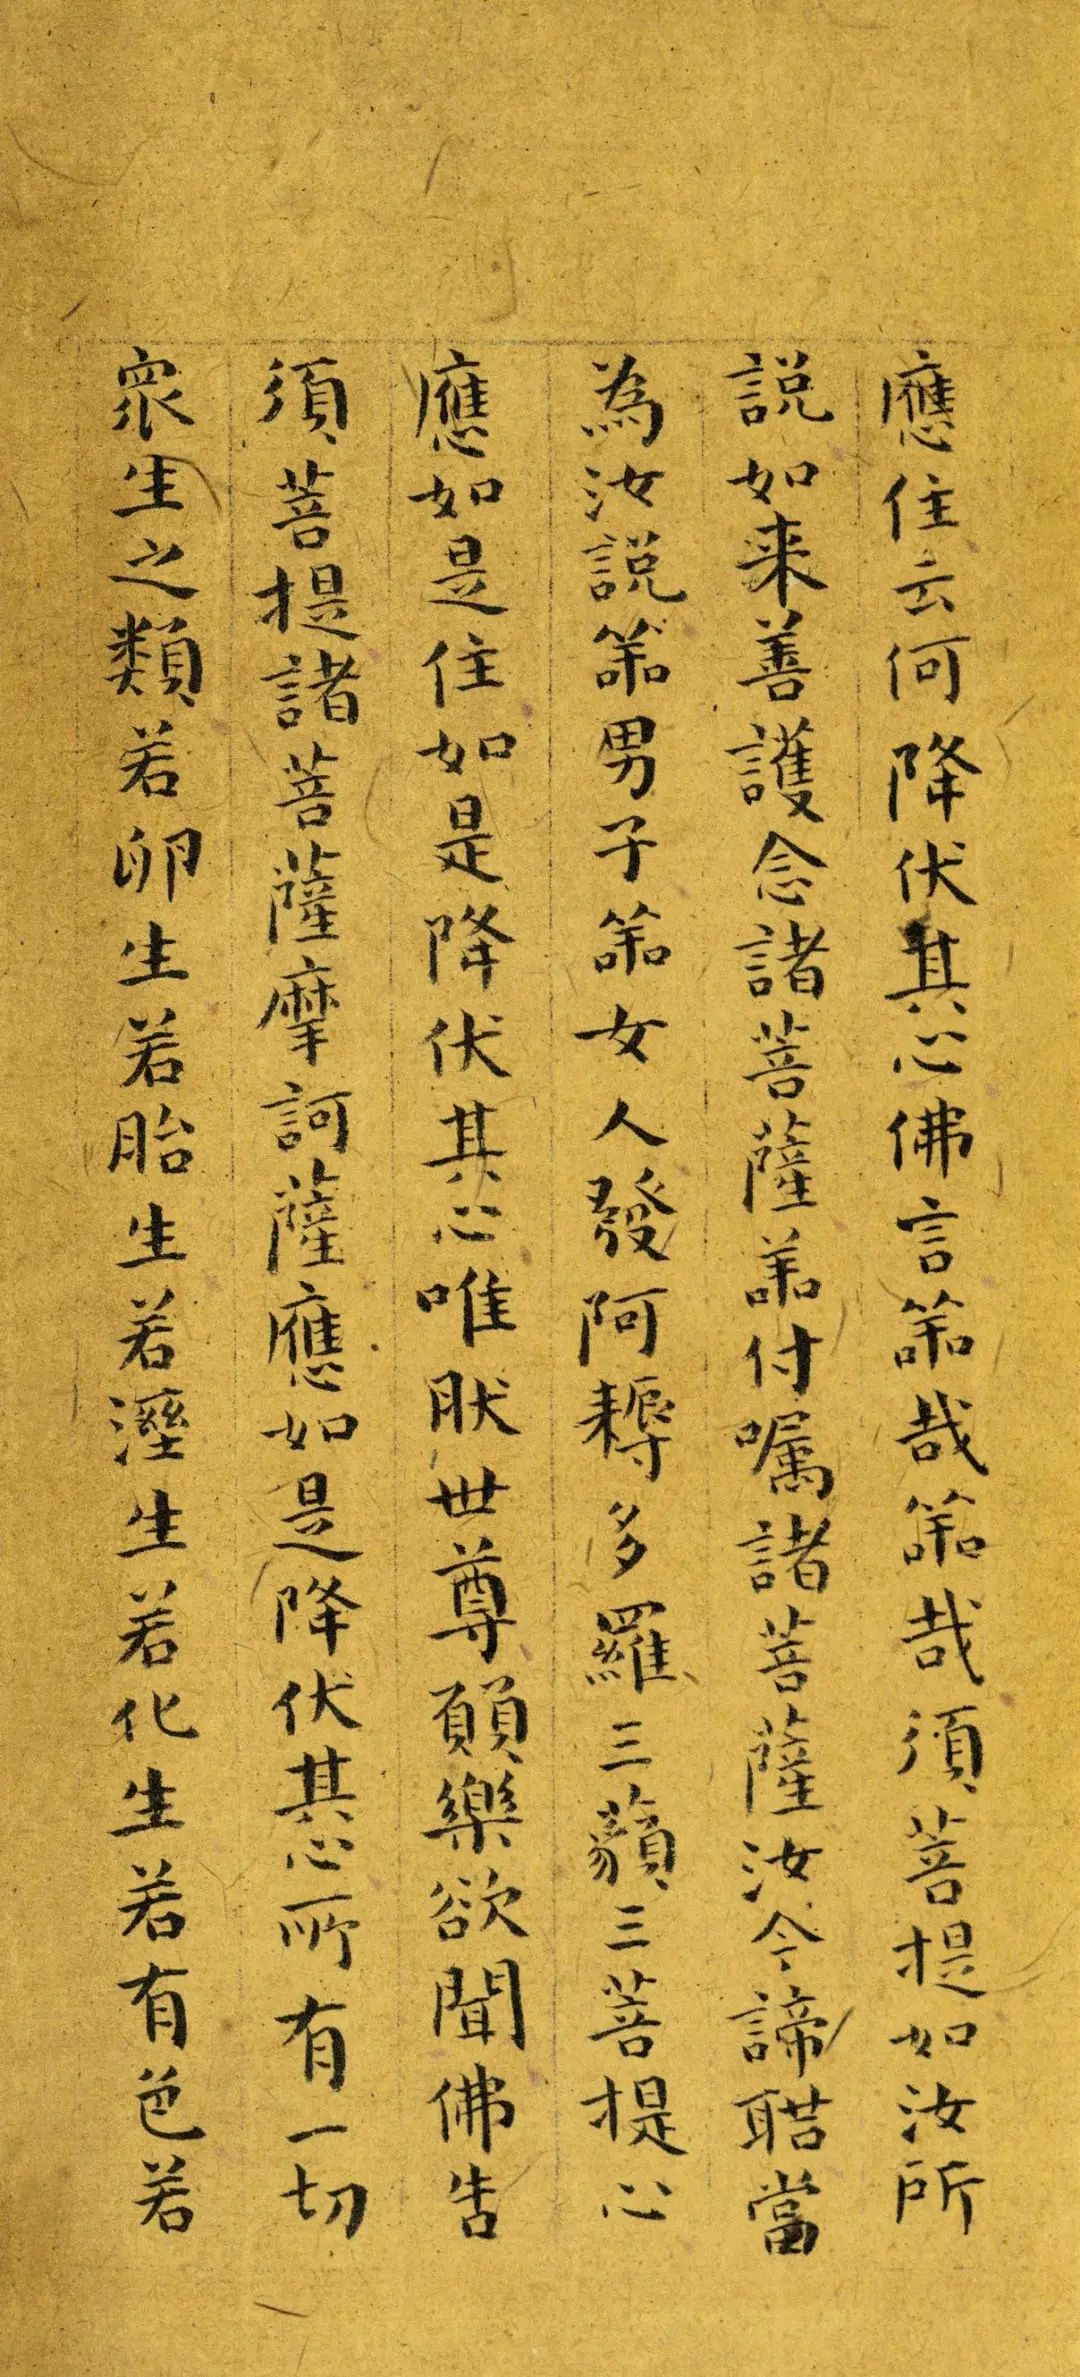 應住云何降伏其心佛言善哉善哉須菩提如汝所
說如来善護念諸菩薩善付嘱諸菩薩汝今諦聼當
為汝說善男子善女人發阿耨多羅三藐三菩提心
應如是住如是降伏其心唯然世尊願樂欲聞佛告
須菩提諸菩薩摩訶薩應如是降伏其心所有一切
眾生之類若卵生若胎生若溼生若化生若有色若